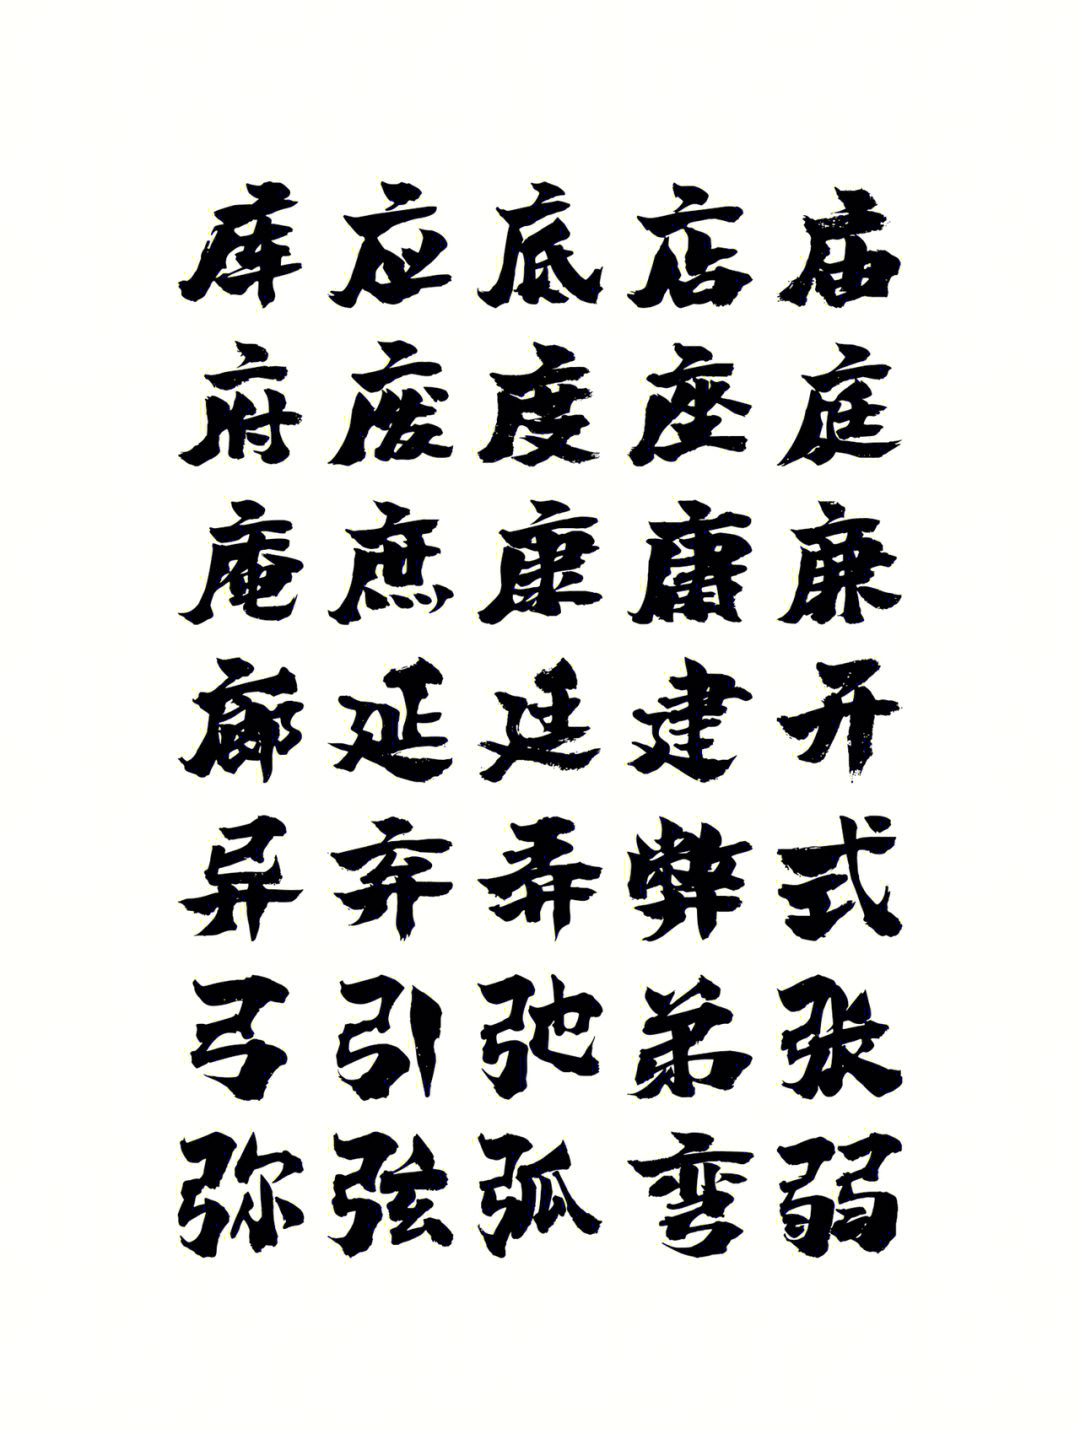 库应底店庙
府废度座庭
庵庶康庸廉
廊延廷建开
异弃弄弊式
弓引弛弟张
弥弦弧弯弱